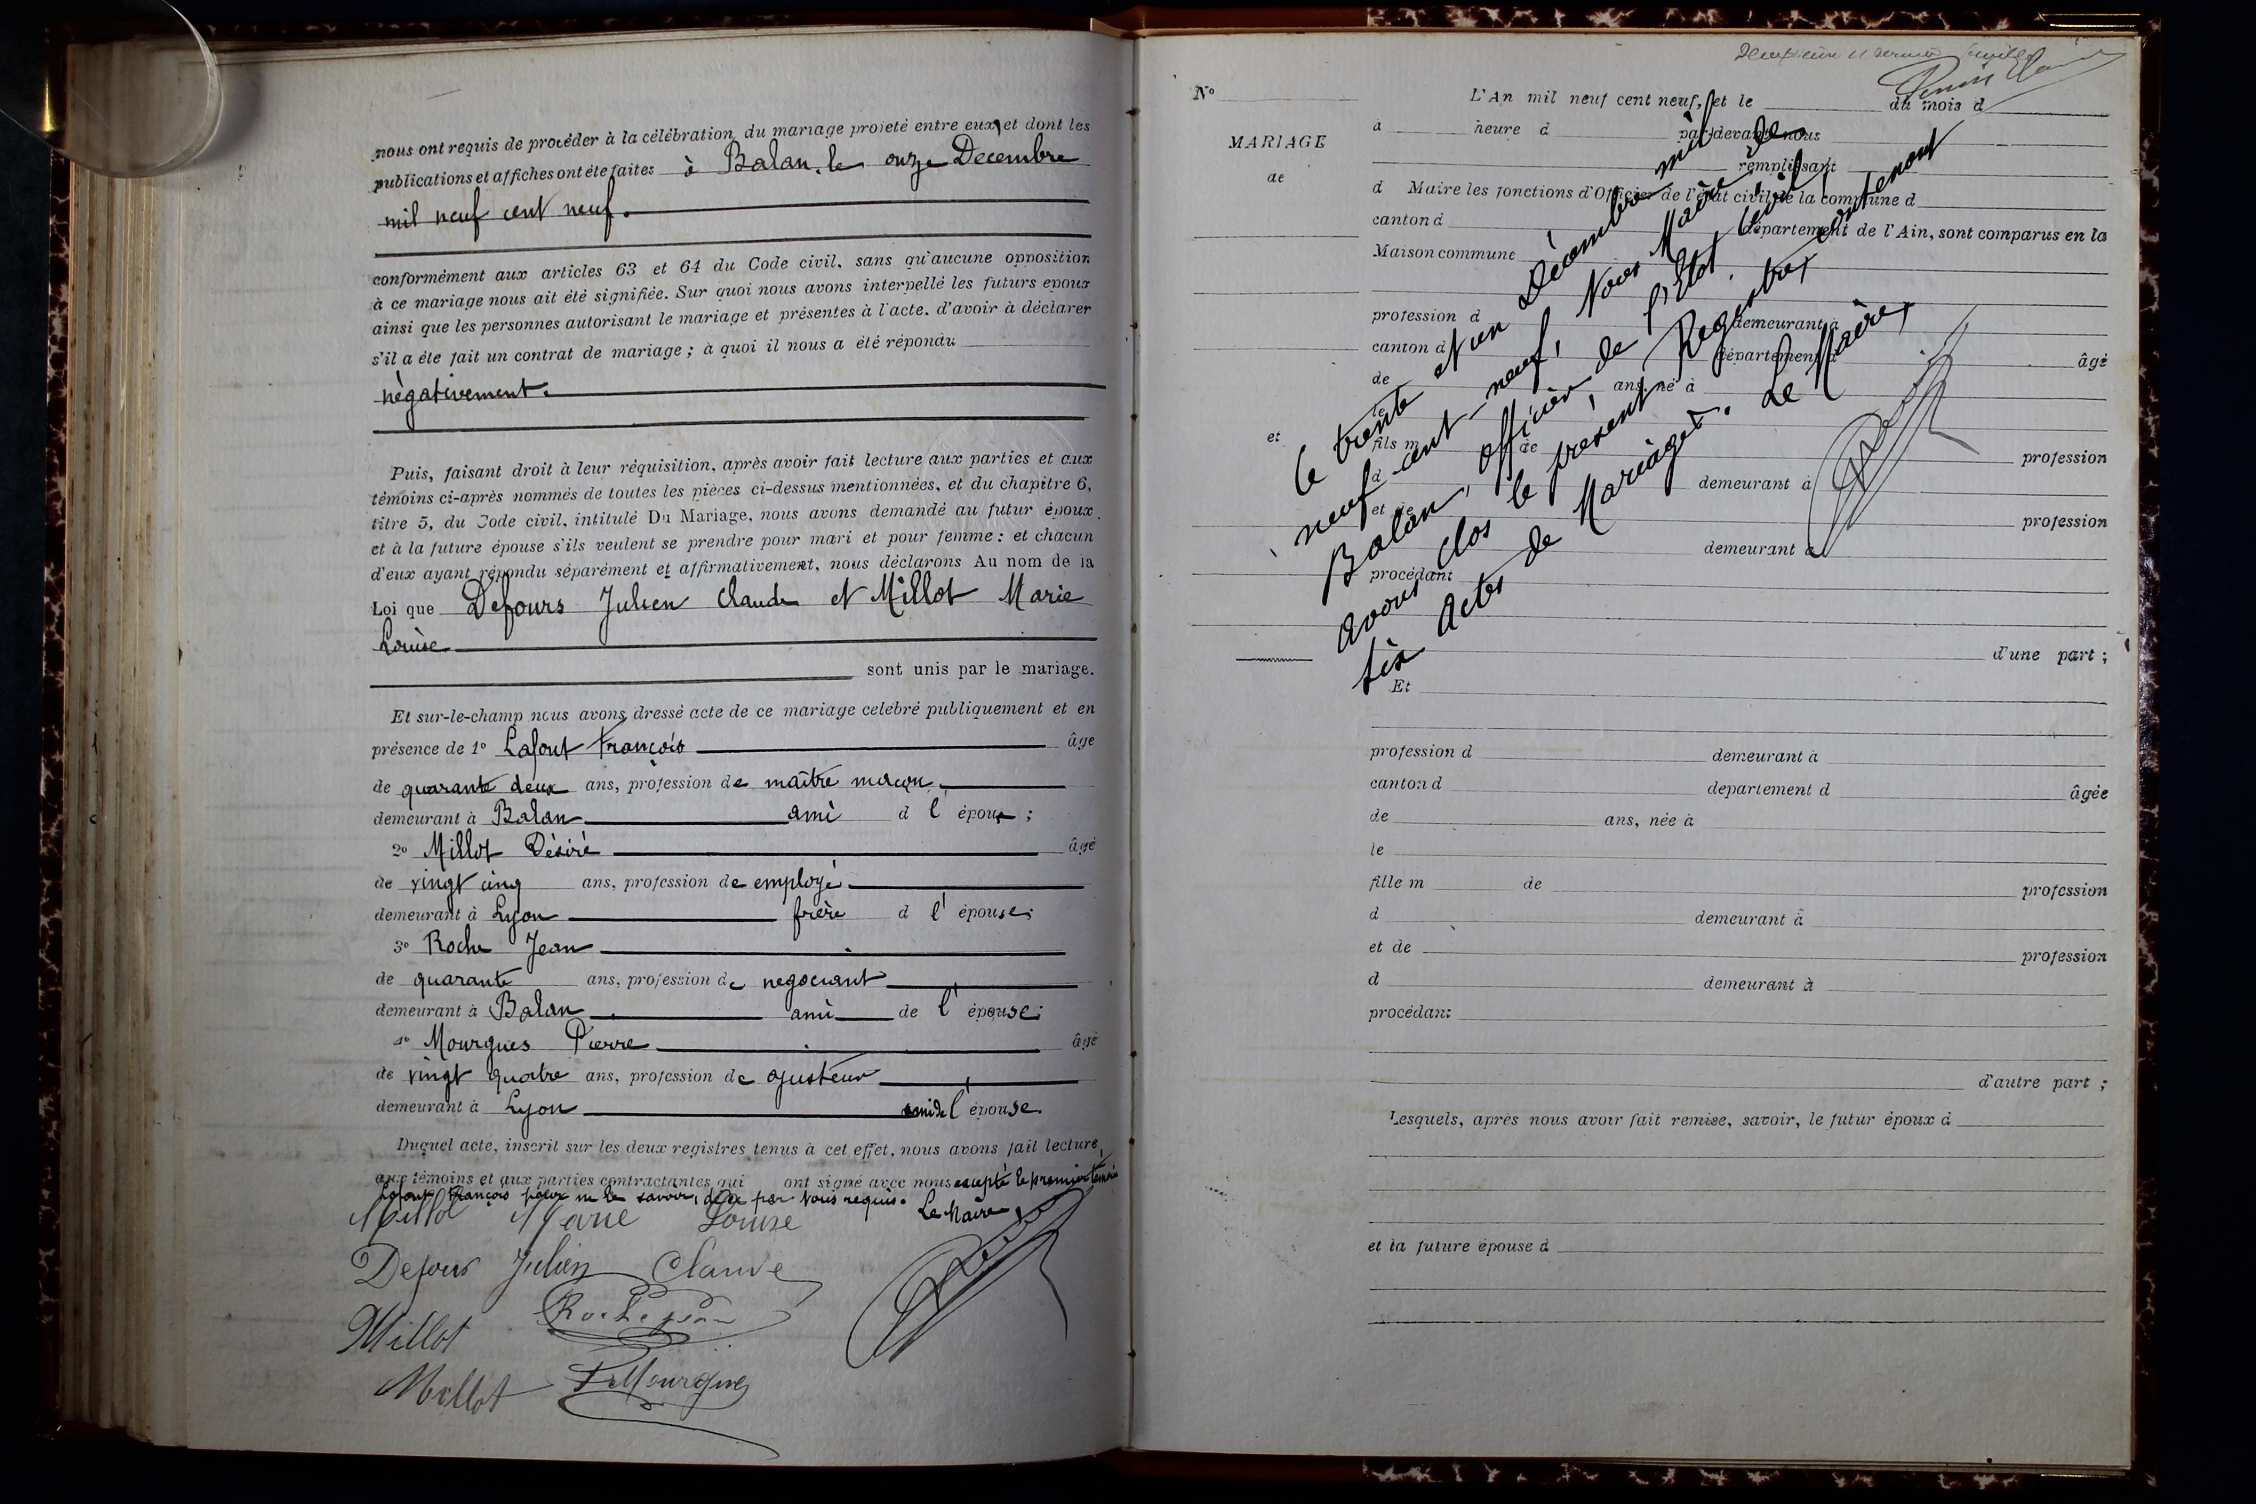 nous ont requis de procéder à la célébration du mariage projeté entre eux, et dont les
publications et affiches ont été faites à Balan, le onze Decembre
mil neuf cent neuf.
conformément aux articles 63 et 64 du Code civil, sans qu'aucune opposition
à ce mariage nous ait été signifiée. Sur quoi nous avons interpellé les futurs epoux
ainsi que les personnes autorisant le mariage et présentes à l'acte, d'avoir à déclarer
s'il a éte fait un contrat de mariage ; à quoi il nous a été répondu
négativement.
Puis, faisant droit à leur réquisition, après avoir fait lecture aux parties et aux
témoins ci-après nommés de toutes les pièces ci-dessus mentionnées, et du chapitre 6,
titre 5, du Code civil, intitulé Du Mariage, nous avons demandé au futur époux
et à la future épouse s'ils veulent se prendre pour mari et pour femme : et chacun
d'eux ayant répondu séparément et affirmativement, nous déclarons Au nom de la
Loi que Defours Julien Claude et Millot Marie
Louise
sont unis par le mariage.
Et sur-le-champ nous avons dressé acte de ce mariage celebré publiquement et en
présence de 1° Lafont François âge
de quarante deux ans, profession de maître maçon
demeurant à Balan ami d l'époux ;
2° Millot Désiré âgé
de vingt cinq ans, profession de employé
demeurant à Lyon frère d l'épouse ;
3° Roche Jean
de quarante ans, profession de negociant
demeurant à Balan ami de l'épouse ;
4° Mourgues Pierre âgé
de vingt quatre ans, profession de ajusteur
demeurant à Lyon ami de l'épouse.
Duquel acte, inscrit sur les deux registres tenus à cet effet, nous avons fait lecture,
aux témoins et aux parties contractantes qui ont signé avec nous excepté le premier témoin
Lafont François pour ne le savoir, de ce par nous requis. Le Maire,
Millot Marie Louise
Defours Julien Claude
Millot Roche Jean
Millot P Mourgues
Deuxième et dernier feuillet
N°
MARIAGE
de
et
L'An mil neuf cent neuf, et le du mois d
à heure d par devant nous
remplissant
d Maire les fonctions d'Officier de l'état civil de la commune d
canton d département de l'Ain, sont comparus en la
Maison commune
profession d demeurant à
canton d département d âgé
de ans, né à
le
fils m de profession
d demeurant à
et de profession
demeurant à
procédant
d'une part ;
Le trente et un Décembre mil
neuf cent neuf, Nous Maire de
Balan, officier de l'Etat Civil
avons clos le present Registre, contenant
six Actes de Mariages. Le Maire,
Et
profession d demeurant à
canton d departement d âgée
de ans, née à
le
fille m de profession
d demeurant à
et de profession
d demeurant à
procédant
d'autre part ;
Lesquels, après nous avoir fait remise, savoir, le futur époux d
et la future épouse d